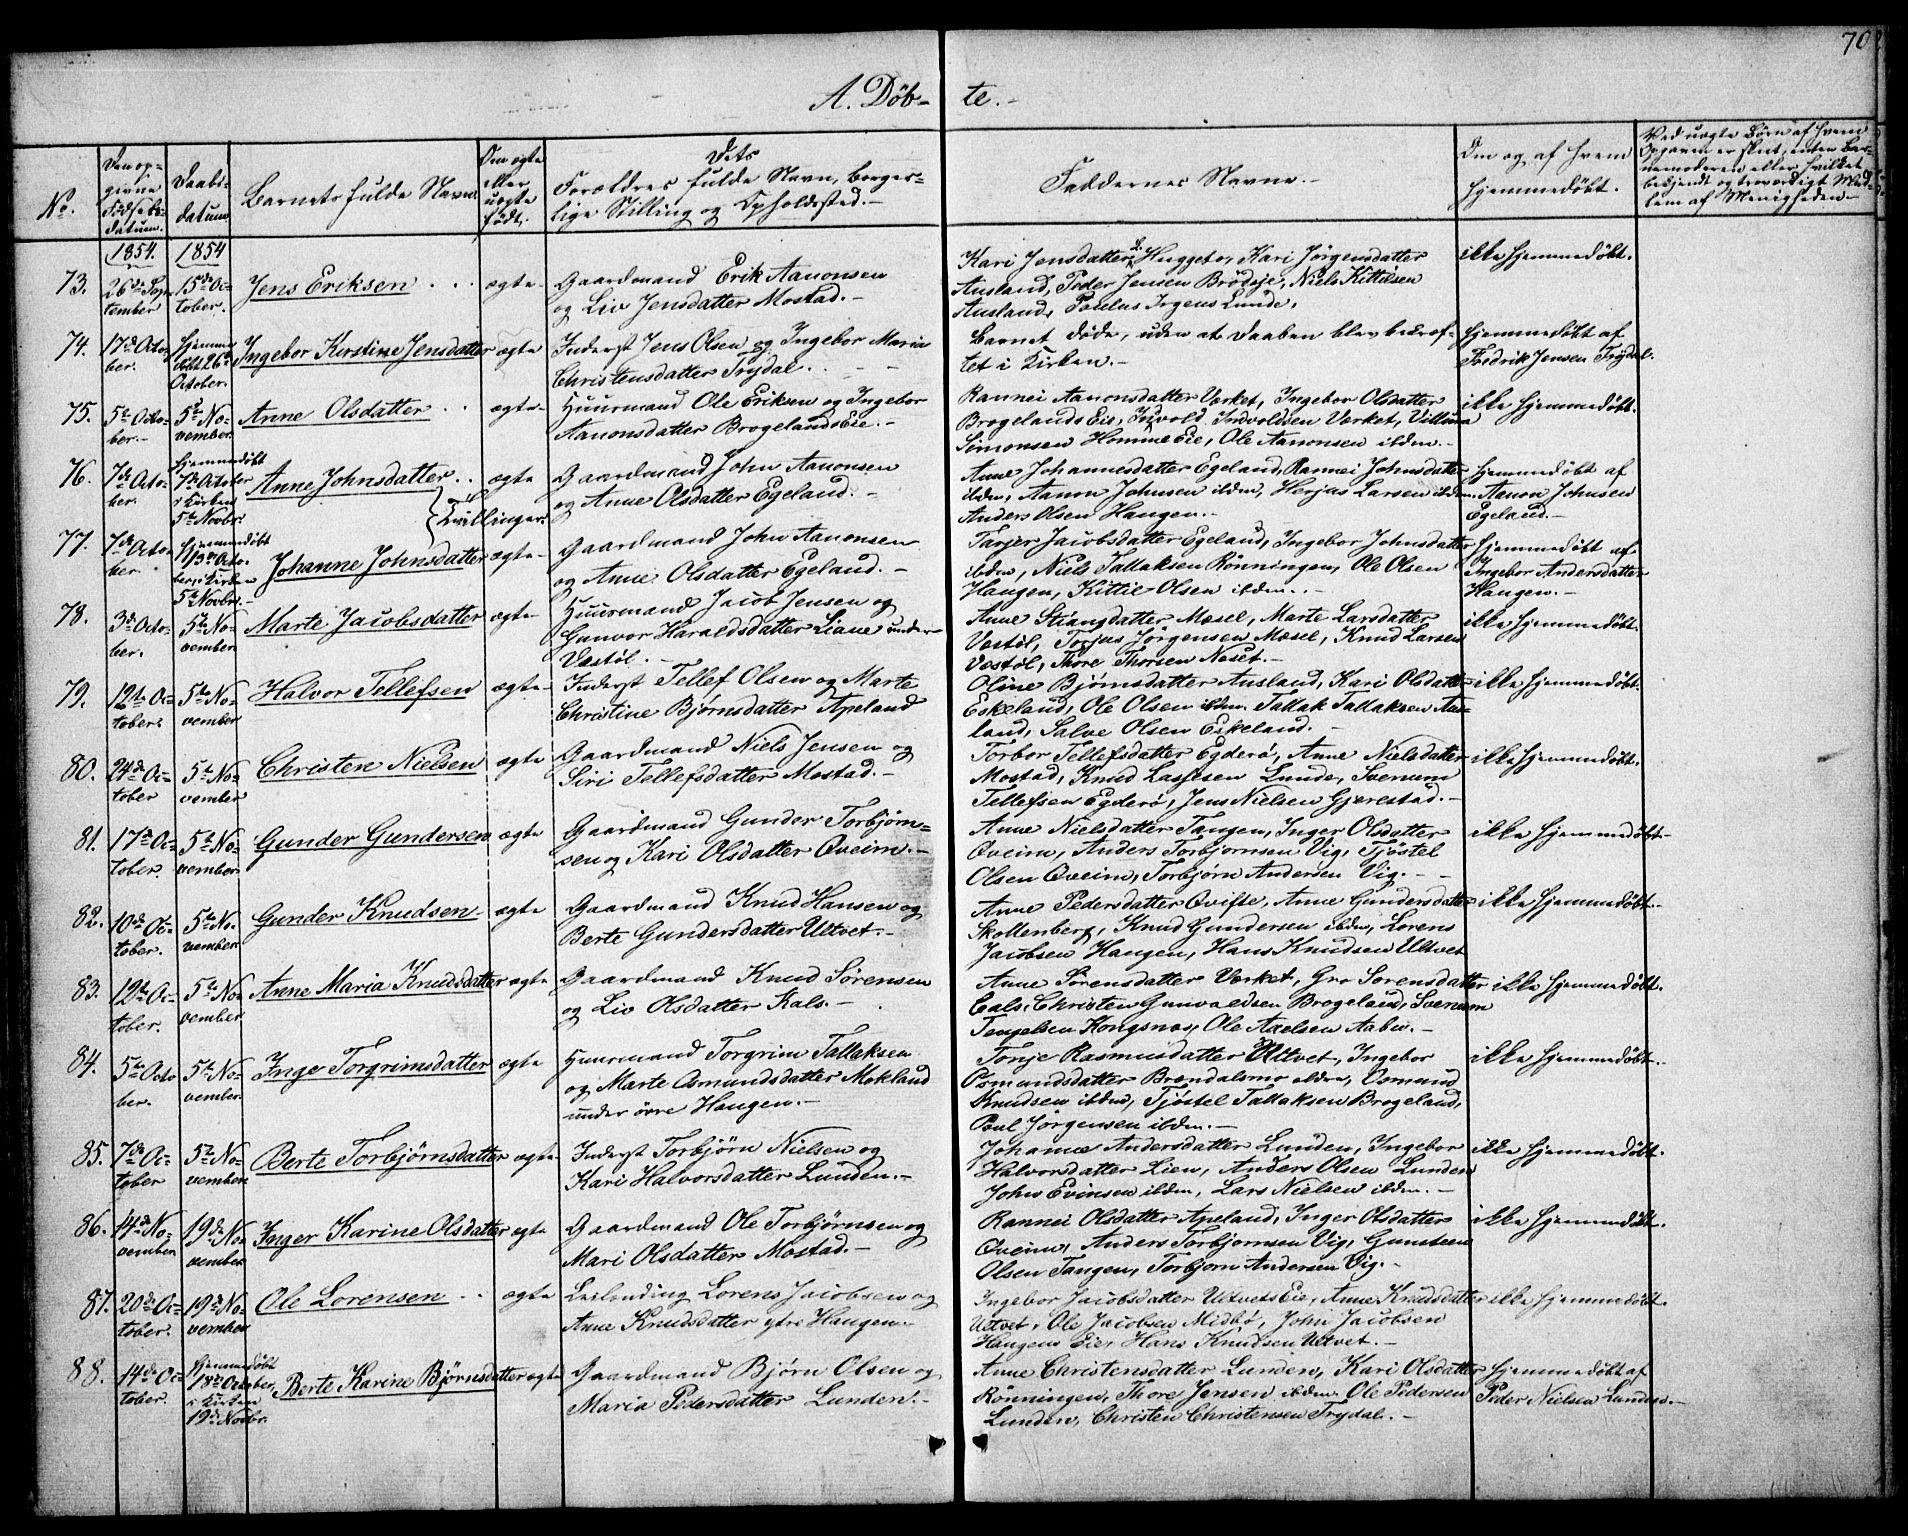 70
A. Døb- te.-
No.
Den op-
givne
Fødsels-
datum.
Daabs-
datum.
Barnets fulde Navn.
Om ægte
eller
uægte
født.
Dets
Forældres fulde Navn, Borger-
lige Stilling og Opholdssted.-
Faddernes Navne.-
Om og af hvem
hjemmedøbt.
Ved uægte Børn af hvem
Opgaven er skeet, enten Bar-
nemoderen eller hvilket
bekjendt og troværdigt Med-
lem af Menigheden.-
1854. 1854
73. 26de Sep-
tember
15de Oc-
tober.
Jens Eriksen
ægte-
Gaardmand Erik Aanonsen
og Liv Jensdatter Mostad.-
Kari Jensdatter L. Huggebo, Kari Jørgensdatter
Ausland, Peder Jensen Brødsje, Niels Kittilsen
Ausland, Povelus Irgens Lunde.
ikke hjemmedøbt.
74. 17de Octo-
ber.
hjemme-
døbt 26de
October.
Ingebor Kirstine Jensdatter
ægte
Inderst Jens Olsen og Ingebor Maria
Christensdatter Trydal.
Barnet døde, uden at Daaben blev bekræf-
tet i Kirken.-
hjemmedøbt af
Fredrik Jensen Trydal.
75. 5te Octo-
ber.-
5te No-
vember.
Anne Olsdatter
ægte-
Huusmand Ole Eriksen og Ingebor
Aanonsdatter Brogelands Eie.-
Rannei Aanonsdatter Værket, Ingebor Olsdatter
Brogelands Eie, Indvold Indvoldsen Værket, Villum
Simonsen Homme Eie, Ole Aanonsen ibdm.-
ikke hjemmedøbt.
76. 7de Octo-
ber.
hjemmedøbt
7de October
i Kirken
5te Novbr.
Anne Johnsdatter
ægte
Gaardmand John Aanonsen
og Anne Olsdatter Egeland.-
Anne Johannesdatter Egeland, Rannei Johnsdatter
ibdm, Aanon Johnsen ibdm, Herjus Larsen ibdm.
Anders Olsen Haugen.-
hjemmedøbt af
Aanon Johnsen
Egeland.-
Tvillinger.
77. 7de Octo-
ber
hjemmedøbt
13de Octo-
ber, i Kirken
5te Novbr.-
Johanne Johnsdatter
ægte-
Gaardmand John Aanonsen
og Anne Olsdatter Egeland.-
Tarjer Jacobsdatter Egeland, Ingebor Johnsdatter
ibdm, Niels Tallaksen Rønningen, Ole Olsen
Haugen, Kittil Olsen ibdm.-
hjemmedøbt af
Ingebor Andersdatter
Haugen.-
78. 3de Octo-
ber.
5te No-
vember.
Marte Jacobsdatter
ægte-
Huusmand Jacob Jensen og
Gunvor Haraldsdatter Liane under
Væstøl.-
Anne Stiansdatter Mæsel, Marte Larsdatter
Væstøl, Torjus Jørgensen Mæsel, Knud Larsen
Væstøl, Thore Thorsen Neset.-
ikke hjemmedøbt.
79. 12te Oc-
tober.
5te No-
vember
Halvor Tellefsen
ægte-
Inderst Tellef Olsen og Marte
Christine Bjørnsdatter Apeland
Oline Bjørnsdatter Ausland, Kari Olsdatter
Eskeland, Ole Olsen ibdm. Tallak Tallaksen Aus-
land, Salve Olsen Eskeland.-
ikke hjemmedøbt.
80. 24de Oc-
tober
5te No-
vember
Christen Nielsen
ægte
Gaardmand Niels Jensen og
Siri Tellefsdatter Mostad.-
Torbor Tellefsdatter Egderø, Anne Nielsdatter
Mostad, Knud Lassesen Lunde, Svenum
Tellefsen Egderø, Jens Nielsen Gjerestad.-
ikke hjemmedøbt.
81. 17de Oc-
tober.
5te No-
vember.
Gunder Gundersen
ægte
Gaardmand Gunder Torbjørn-
sen og Kari Olsdatter Qveim.-
Anne Nielsdatter Tangen, Inger Olsdatter
Qveim, Anders Torbjørnsen Vig, Tjøstel
Olsen Qveim, Torbjørn Andersen Vig.-
ikke hjemmedøbt-
82. 10de Oc-
tober.
5te No-
vember.
Gunder Knudsen
ægte
Gaardmand Knud Hansen og
Berte Gundersdatter Ultvet.-
Anne Pedersdatter Qvifte, Anne Gundersdatter
Skollenberg, Knud Gundersen ibdm, Lorens
Jacobsen Haugen, Hans Knudsen Ultvet
ikke hjemmedøbt.-
83. 12te Oc-
tober.
5te No-
vember.
Anne Maria Knudsdatter
ægte
Gaardmand Knud Sørensen
og Liv Olsdatter Kals.-
Anne Sørensdatter Værket, Gro Sørensdatter
Eals, Christen Gunvaldsen Brogeland, Svenum
Tengelsen Kongsnæs, Ole Axelsen Aabu.-
ikke hjemmedøbt.
84. 5te Octo-
ber.
5te No-
vember.
Inge Torgrimsdatter
ægte
Huusmand Torgrim Tallaksen
og Marte Osmundsdatter Mokland
under øvre Haugen.-
Tonje Rasmusdatter Ultvet, Ingebor
Osmundsdatter Brændalsmo ældre, Osmund
Knudsen ibdm, Tjøstel Tallaksen Brogeland,
Poul Jørgensen ibdm.-
ikke hjemmedøbt.
85. 7de Oc-
tober
5te No-
vember.
Berte Torbjørnsdatter
ægte
Inderst Torbjørn Nielsen og
Kari Halvorsdatter Lunden.-
Johanne Andersdatter Lunden, Ingebor
Halvorsdatter Lien, Anders Olsen Lunden
John Evinsen ibdm, Lars Nielsen ibdm.-
ikke hjemmedøbt.
86. 14de No-
vember
19de No-
vember
Inger Karine Olsdatter
ægte
Gaardmand Ole Torbjørnsen og
Mari Olsdatter Mostad.-
Rannei Olsdatter Apeland, Inger Olsdatter
Qveim, Anders Torbjørnsen Vig, Gunsteen
Olsen Tangen, Torbjørn Andersen Vig.-
ikke hjemmedøbt.
87. 20de Oc-
tober.
19de No-
vember
Ole Lorensen
ægte
Leilending Lorens Jacobsen og
Anne Knudsdatter ytre Haugen.-
Ingebor Jacobsdatter Ultvets Eie, Anne Knudsdatter
Ultvet, Ole Jacobsen Midbø, John Jacobsen
Haugens Eie, Hans Knudsen Ultvet.-
ikke hjemmedøbt.
88. 14de Oc-
tober.
hjemmedøbt
18de October,
i Kirken
19de Novbr.
Berte Karine Bjørnsdatter
ægte
Gaardmand Bjørn Olsen og
Maria Pedersdatter Lunden.-
Anne Christensdatter Lunden, Kari Olsdatter
Rønningen, Thore Jensen ibdm. Ole Pedersen
Lunden, Christen Christensen Trydal.-
hjemmedøbt af
Peder Nielsen Lunden.-